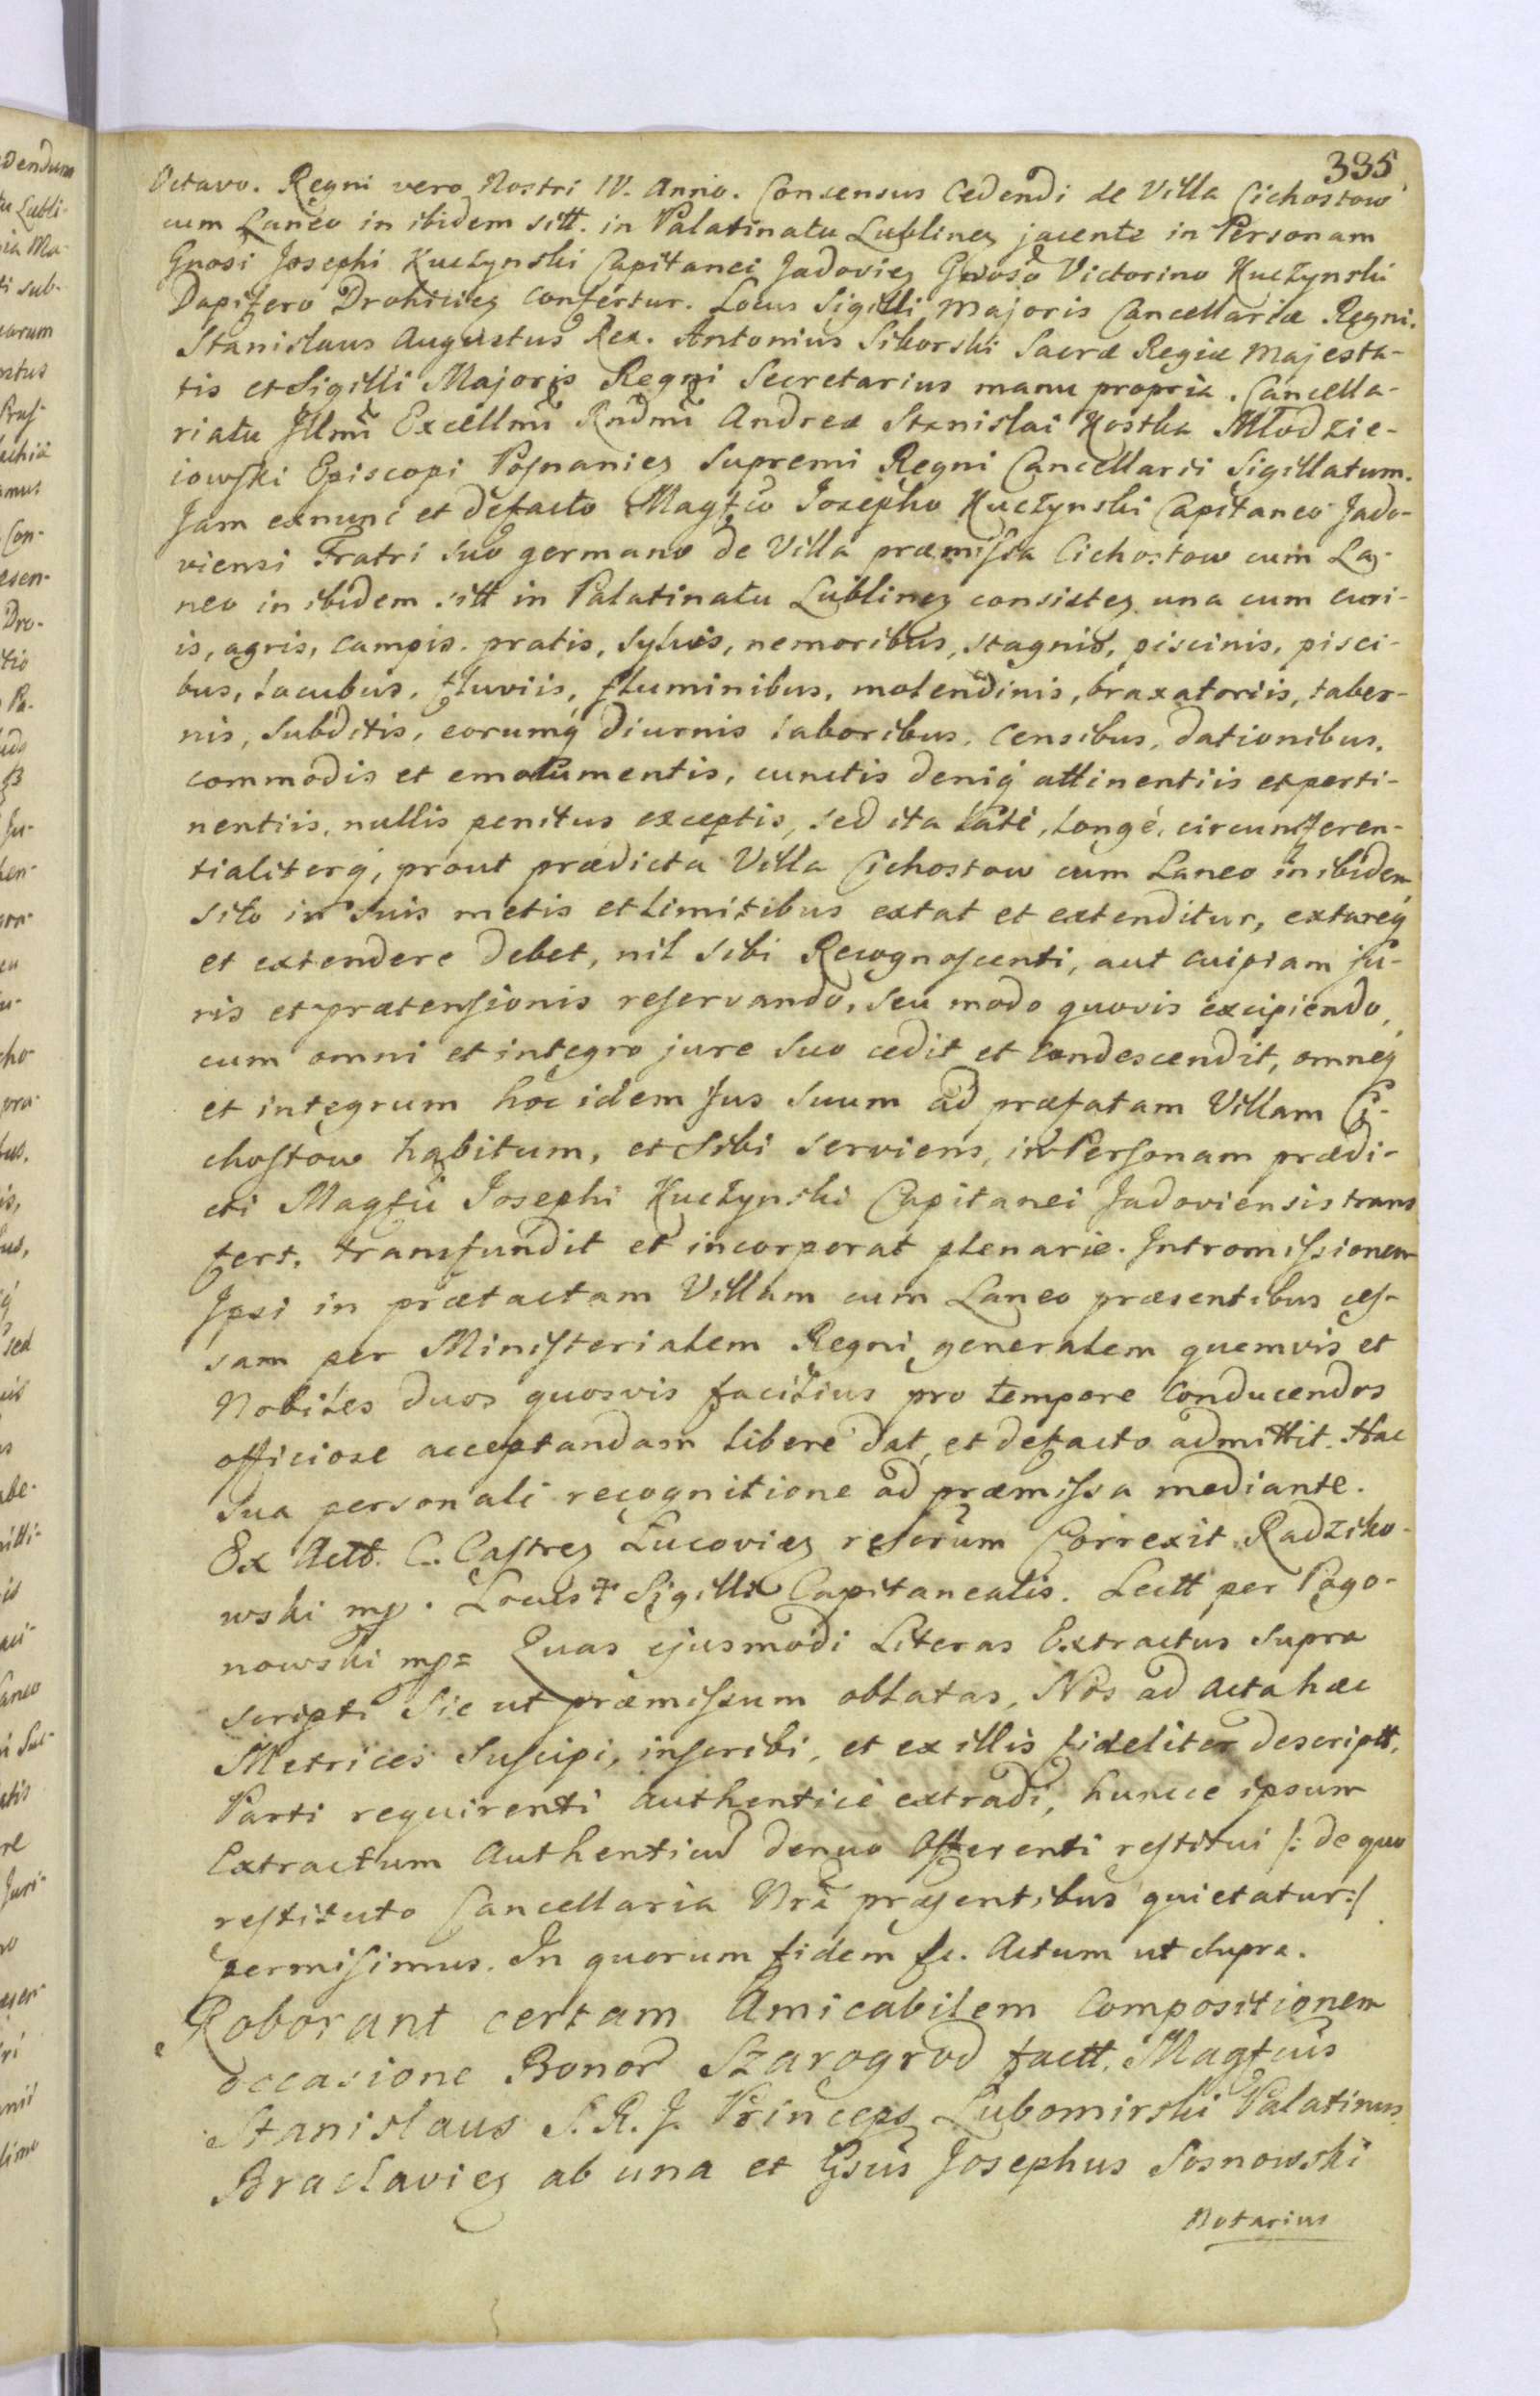 335
Octavo. Regni vero Nostri IV. Anno. Consensus Cedendi de Villa Cichostow
cum Laneo in ibidem sitt. in Palatinatu Lublinen jacente in Personam
Gnosi Josephi Kuczynski Capitanei Jadovien Gnoso Victorino Kuczynski
Dapifero Drohicien confertur. Locus Sigilli Majoris Cancellariæ Regni.
Stanislaus Augustus Rex. Antonius Sikorski Sacræ Regiæ Majesta-
tis et Sigilli Majoris Regni Secretarius manu propria. Cancella-
riatu Illmi Excellmi Rndmi Andreæ Stanislai Kostka Młodzie-
iowski Episcopi Posnanien Supremi Regni Cancellarii Sigillatum.
Jam exnunc et defacto Magfco Josepho Kuczynski Capitaneo Jado-
viensi Fratri suo germano de Villa præmissa Cichostow cum La-
neo in ibidem sitt in Palatinatu Lublinen consisten una cum curi-
is, agris, campis. pratis, sylvis, nemoribus, stagnis, piscinis, pisci-
bus, lacubus, fluviis, fluminibus, molendinis, braxatoriis, taber-
nis, subditis, eorumq diurnis laboribus, censibus, dationibus,
commodis et emolumentis, cunctis deniq attinentiis et perti-
nentiis, nullis penitus exceptis, sed ita latè, longè, circumferen-
tialiterq, prout prædicta Villa Cichostow cum Laneo in ibidem
sito in suis metis et limitibus extat et extenditur, extareq
et extendere debet, nil sibi Recognoscenti, aut cuipiam ju-
ris et prætensionis reservando, seu modo quovis excipiendo,
cum omni et integro jure suo cedit et condescendit, omneq
et integrum hoc idem Jus suum ad præfatam Villam Ci-
chostow habitum, et sibi serviens, in Personam prædi-
cti Magfci Josephi Kuczynski Capitanei Jadoviensis trans
fert, transfundit et incorporat plenarie. Intromissionem
Ipsi in prætactam Villam cum Laneo præsentibus ces-
sam per Ministerialem Regni generalem quemvis et
Nobiles duos quosvis facilius pro tempore conducendos
officiose acceptandam libere dat, et defacto admittit. Hac
sua personali recognitione ad præmissa mediante.
Ex Actt. C. Castren Lucovien rescrum Correxit Radziko-
wski mp. Locus Sigilli Capitanealis. Lectt per Pogo-
nowski mp= Quas ejusmodi Literas Extractus supra
scripti Sic ut præmissum oblatas, Nos ad Acta hæc
Metrices suscipi, inscribi, et ex illis fideliter descriptt,
Parti requirenti authenticè extradi, huncce ipsum
Extractum Authenticum denuo Offerenti restitui /: de quo
restituto Cancellaria Nrã præsentibus quietatur:/
permisimus. In quorum fidem &c. Actum ut supra.
Roborant certam Amicabilem Compositionem
occasione Bonor Szarogrod factt. Magfcus
Stanislaus S. R. J. Princeps Lubomirski Palatinus
Braclavien ab una et Gsus Josephus Sosnowski
Notarius